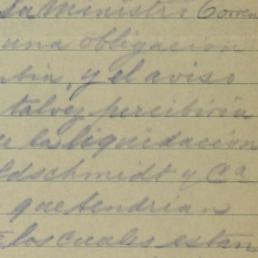 Ministro Corren
una obligación
bia, y el aviso
talvez percibiria
la liquidación
ldschmidt y Cª
que tendrian
los cuales estan